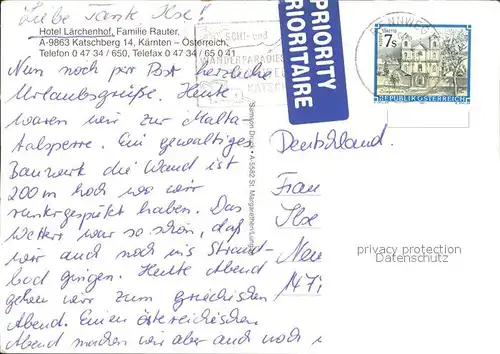 Liebe Tante Ilse!
Hotel Lärchenhof, Familie Rauter,
A-9863 Katschberg 14, Kärnten – Österreich,
Telefon 0 47 34 / 650, Telefax 0 47 34 / 65 0 41
Nun noch per Post herzliche
Urlaubsgrüße. Heute
waren wir zur Malta
talsperre. Ein gewaltiges
Bauwerk die Wand ist
200 m hoch was wir
runtergespäht haben. Das
Wetter war so schön, daß
wir auch noch ins Strand-
bad gingen. Heute Abend
gehen wir zum griechischen
Abend. Einen österreichischen
Abend machen wir aber auch noch
SCHI- und
WANDERPARADIES
KATSCH
PRIORITY
PRIORITAIRE
RENNWEG
7s
REPUBLIK ÖSTERREICH
Samson Druck • A-5582 St. Margarethen
Deutschland.
Frau
Ilse
privacy protection
Datenschutz